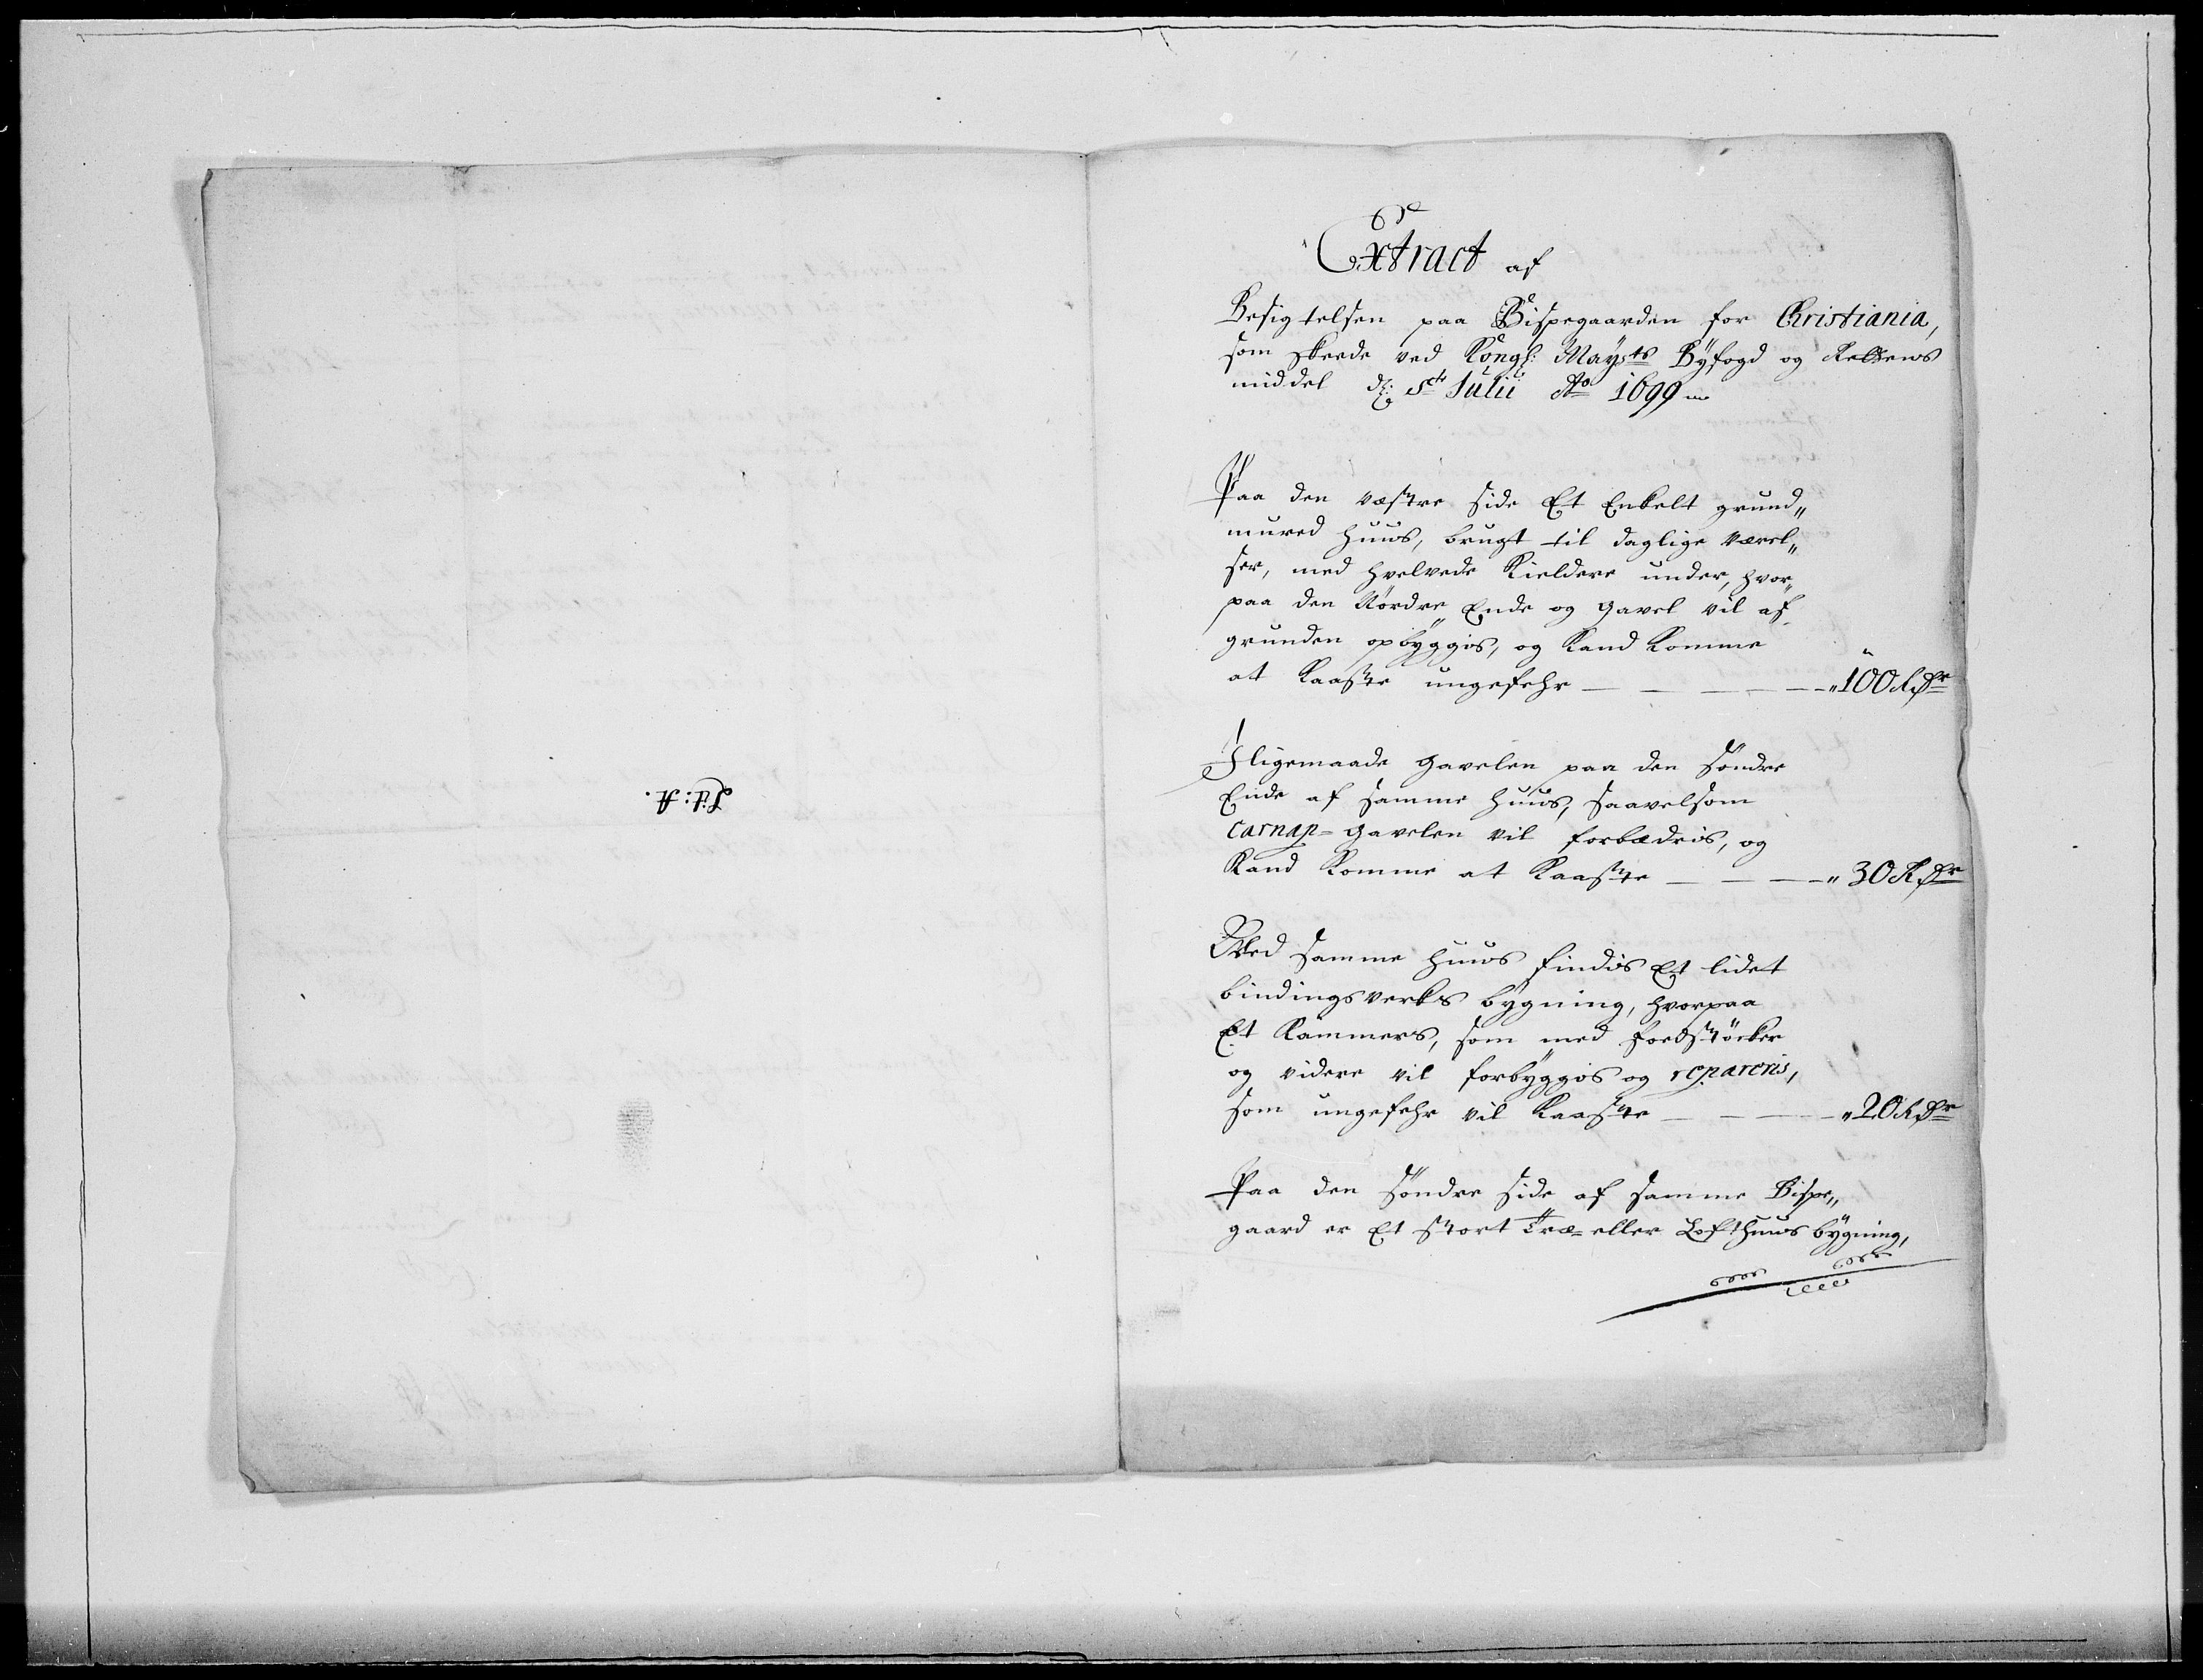 Lit: A.
Extract af
Besigtelsen paa Bispegaarden for Christiania,
som skeede ved Kongl: Maysts Byfogd og Rettens
middel dẽ 5te Julii Ao 1699
Paa den væstre side Et Enkelt grund„
mured huus, brugt til daglige værel„
ser, med hvelvede Kieldere under, hvor„
paa den Nørdre Ende og gavel vil af
grunden opbyggis, og Kand Komme
at Kaaste ungefehr — — — — „100 Rdr
Iligemaade gavelen paa den søndre
Ende af samme huus, saavelsom
Carnap-gavelen vil forbædris, og
Kand Komme at Kaaste — — — „30 Rdr
Ved samme huus findis Et lidet
bindingsverks bygning, hvorpaa
Et Kammers, som med foedstöcker
og videre vil forbyggis og repareris,
som ungefehr vil Kaaste — — — „20 Rdr
Paa den søndre side af samme Bispe„
gaard er Et stort Træ- eller Lofthuus bygning,